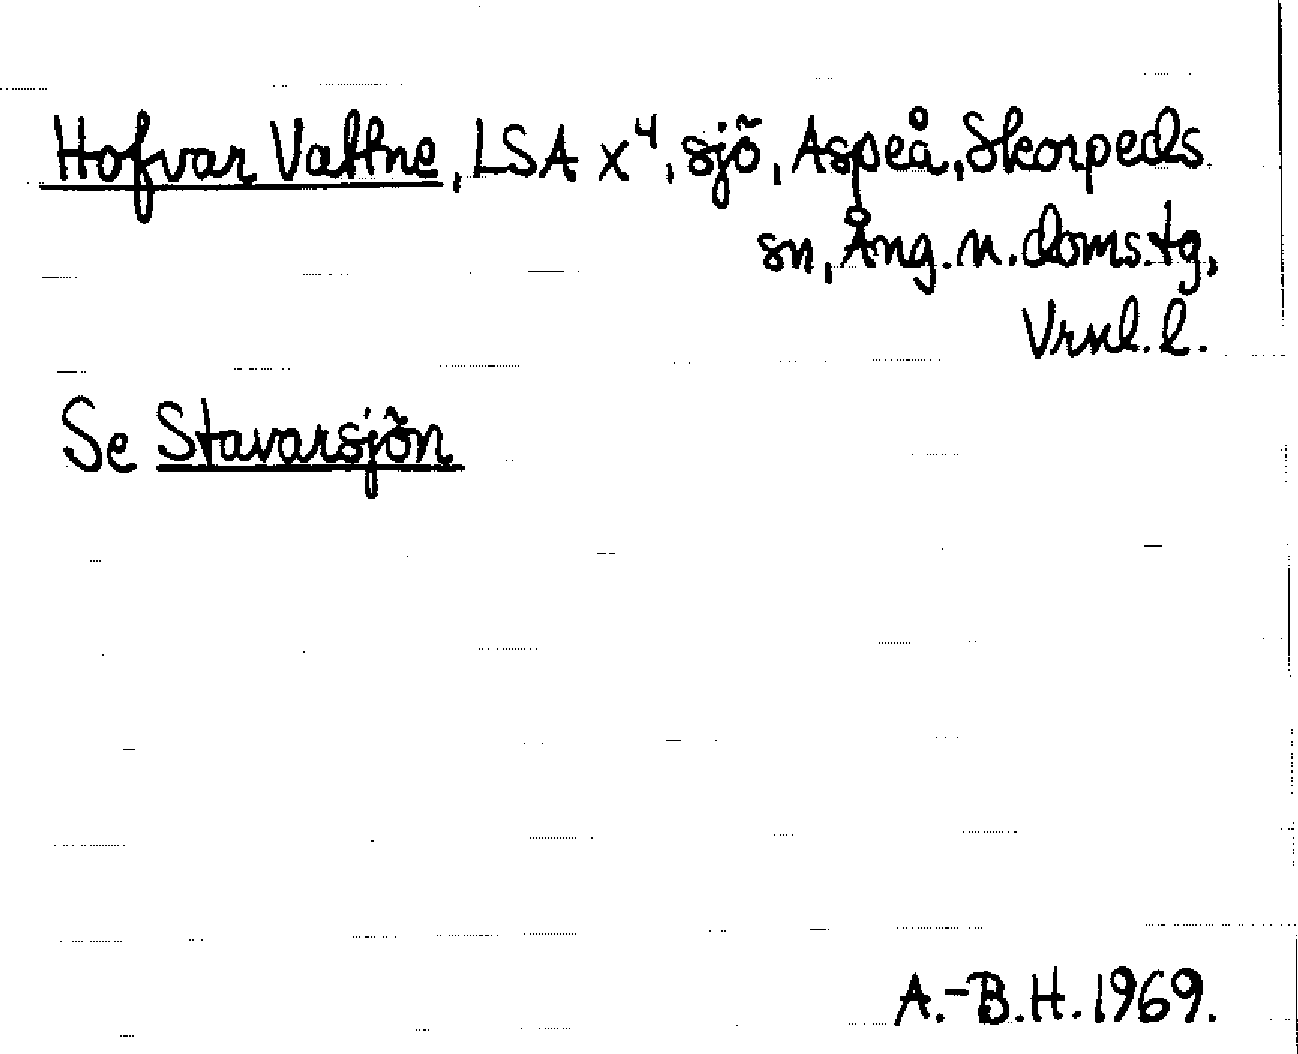 Hofvar Vattne, LSA x⁴, sjö, Aspeå, Skorpeds
sn, Ång. n. doms.tg,
Vrnl. l.
Se Stavarsjön
A.-B.H. 1969.